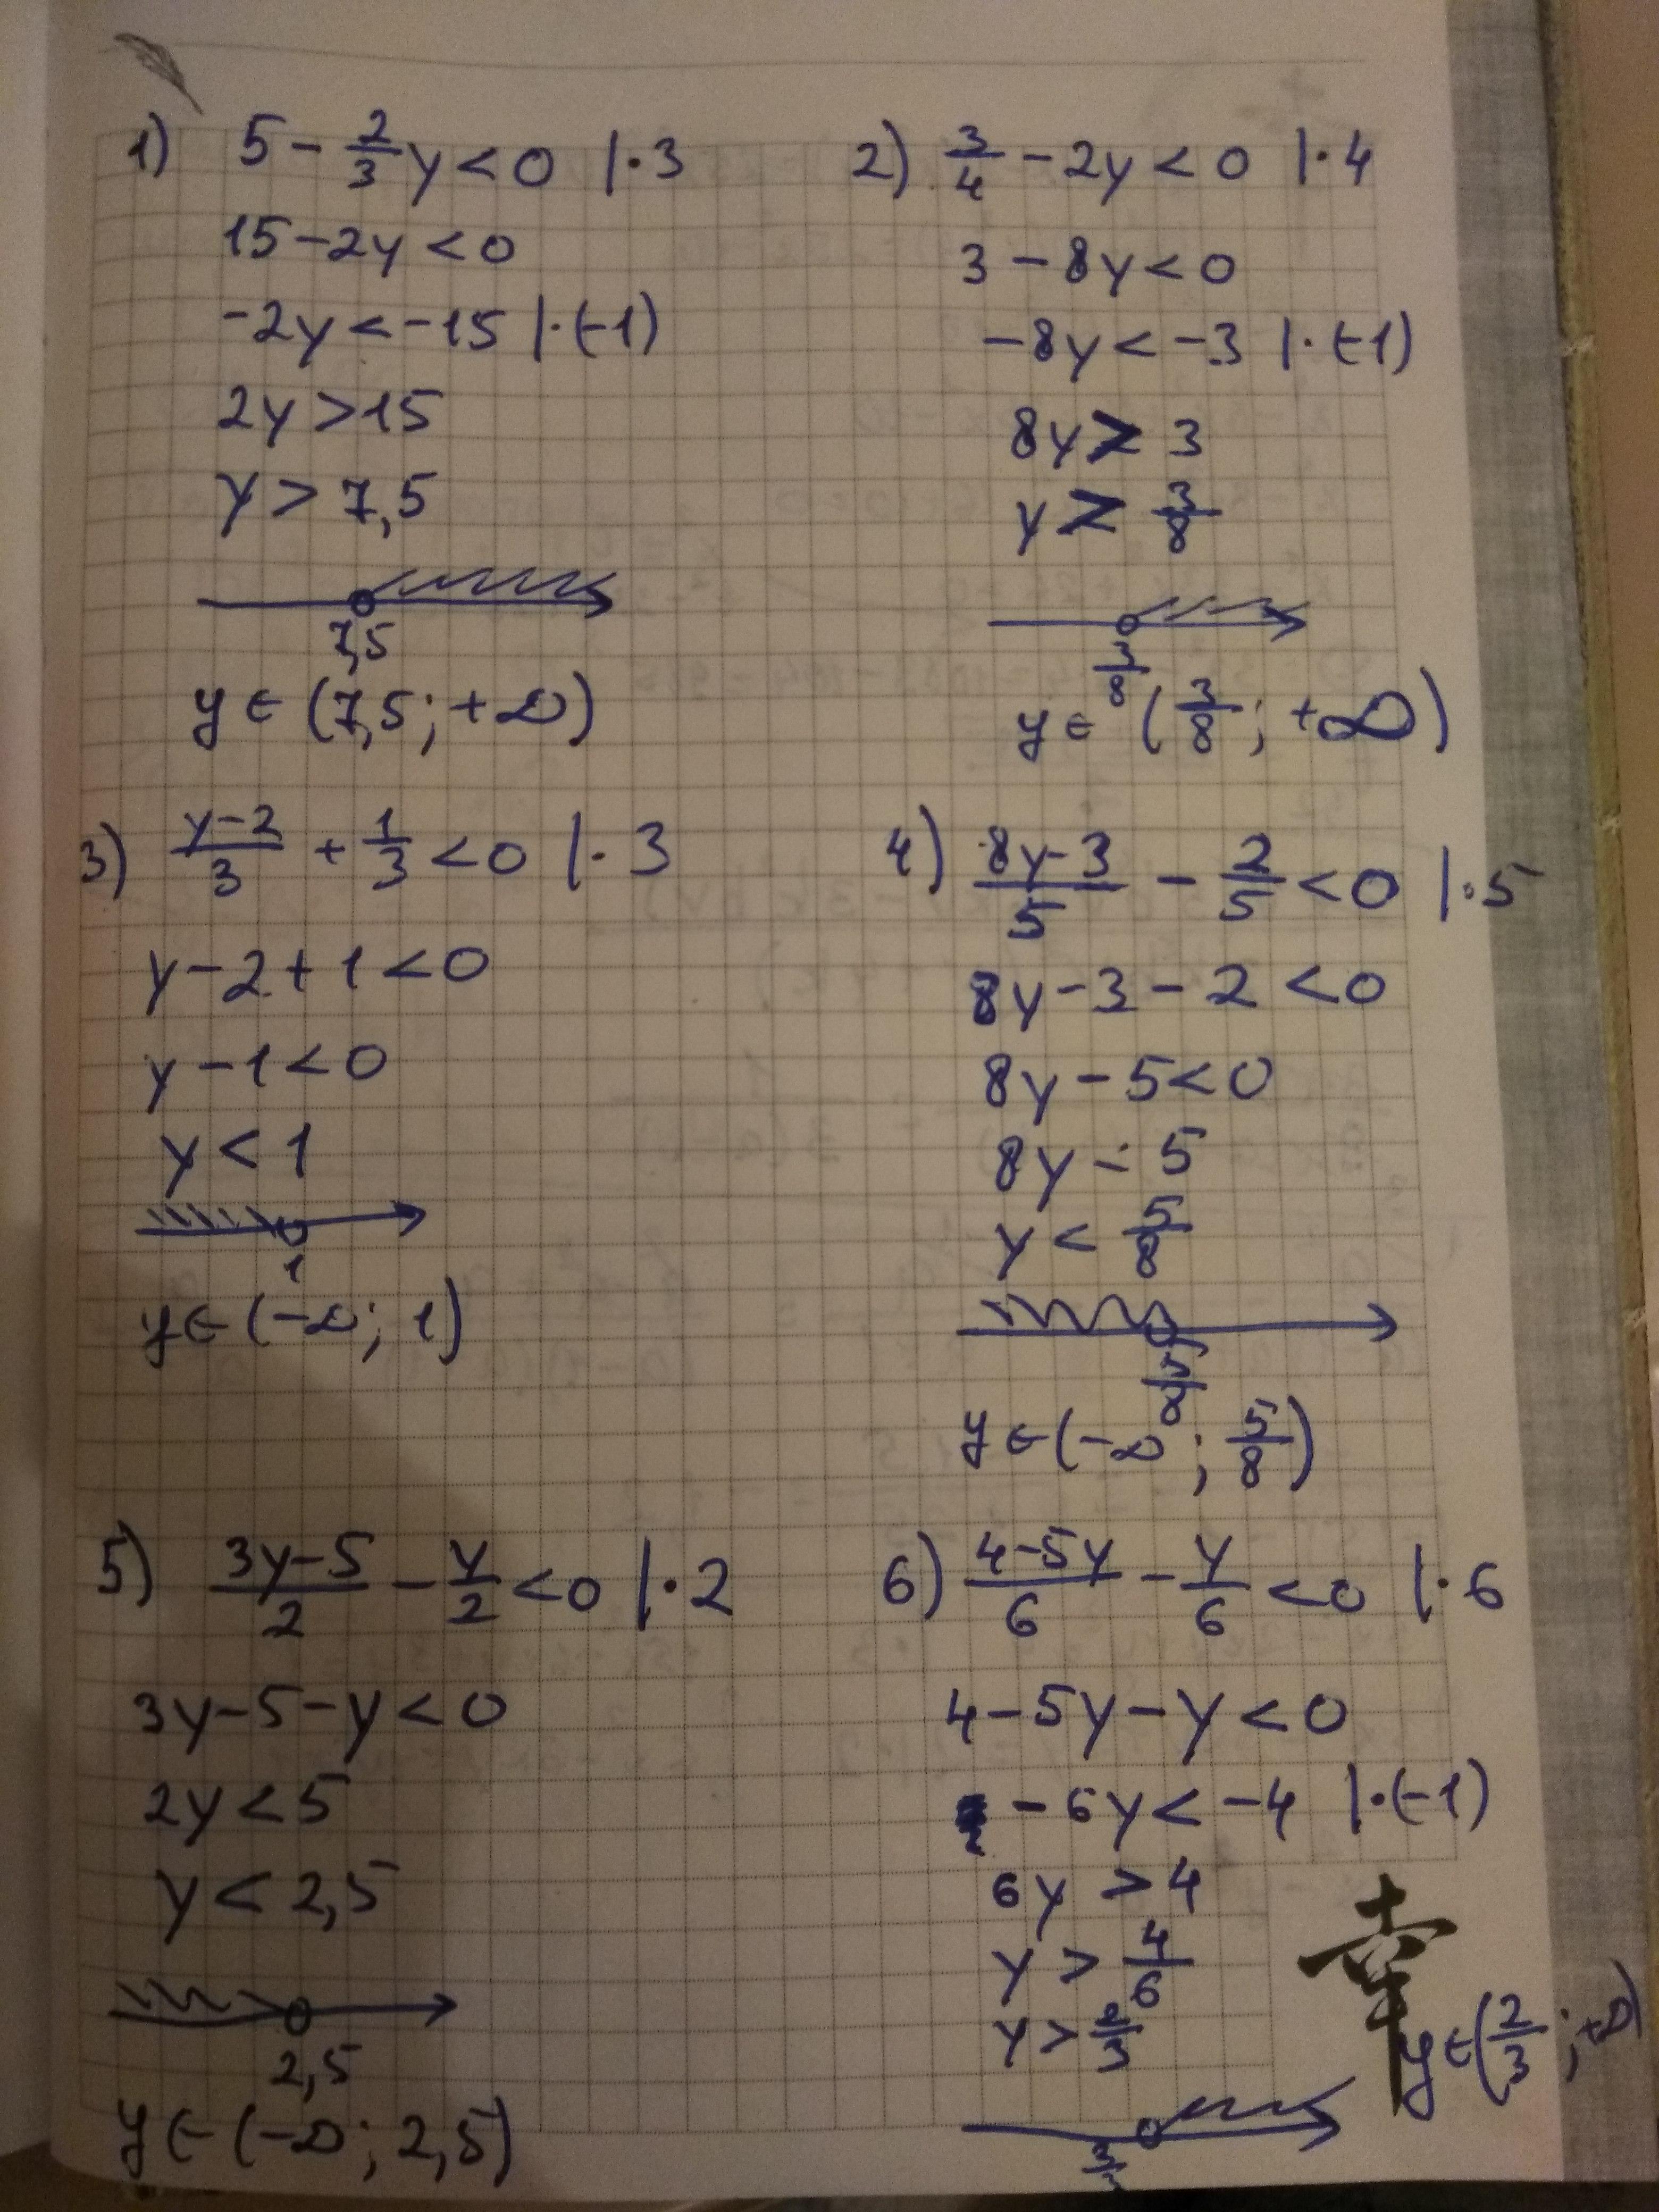 1) 5 - 2/3 y < 0 | · 3
15 - 2y < 0
-2y < -15 | · (-1)
2y > 15
y > 7,5
7,5
y ∈ (7,5; +∞)
2) 3/4 - 2y < 0 | · 4
3 - 8y < 0
-8y < -3 | · (-1)
8y > 3
y > 3/8
3/8
y ∈ (3/8; +∞)
3) (y-2)/3 + 1/3 < 0 | · 3
y - 2 + 1 < 0
y - 1 < 0
y < 1
1
y ∈ (-∞; 1)
4) (8y-3)/5 - 2/5 < 0 | · 5
8y - 3 - 2 < 0
8y - 5 < 0
8y = 5
y < 5/8
5/8
y ∈ (-∞; 5/8)
5) (3y-5)/2 - y/2 < 0 | · 2
3y - 5 - y < 0
2y < 5
y < 2,5
2,5
y ∈ (-∞; 2,5)
6) (4-5y)/6 - y/6 < 0 | · 6
4 - 5y - y < 0
-6y < -4 | · (-1)
6y > 4
y > 4/6
y > 2/3
幸
y ∈ (2/3; +∞)